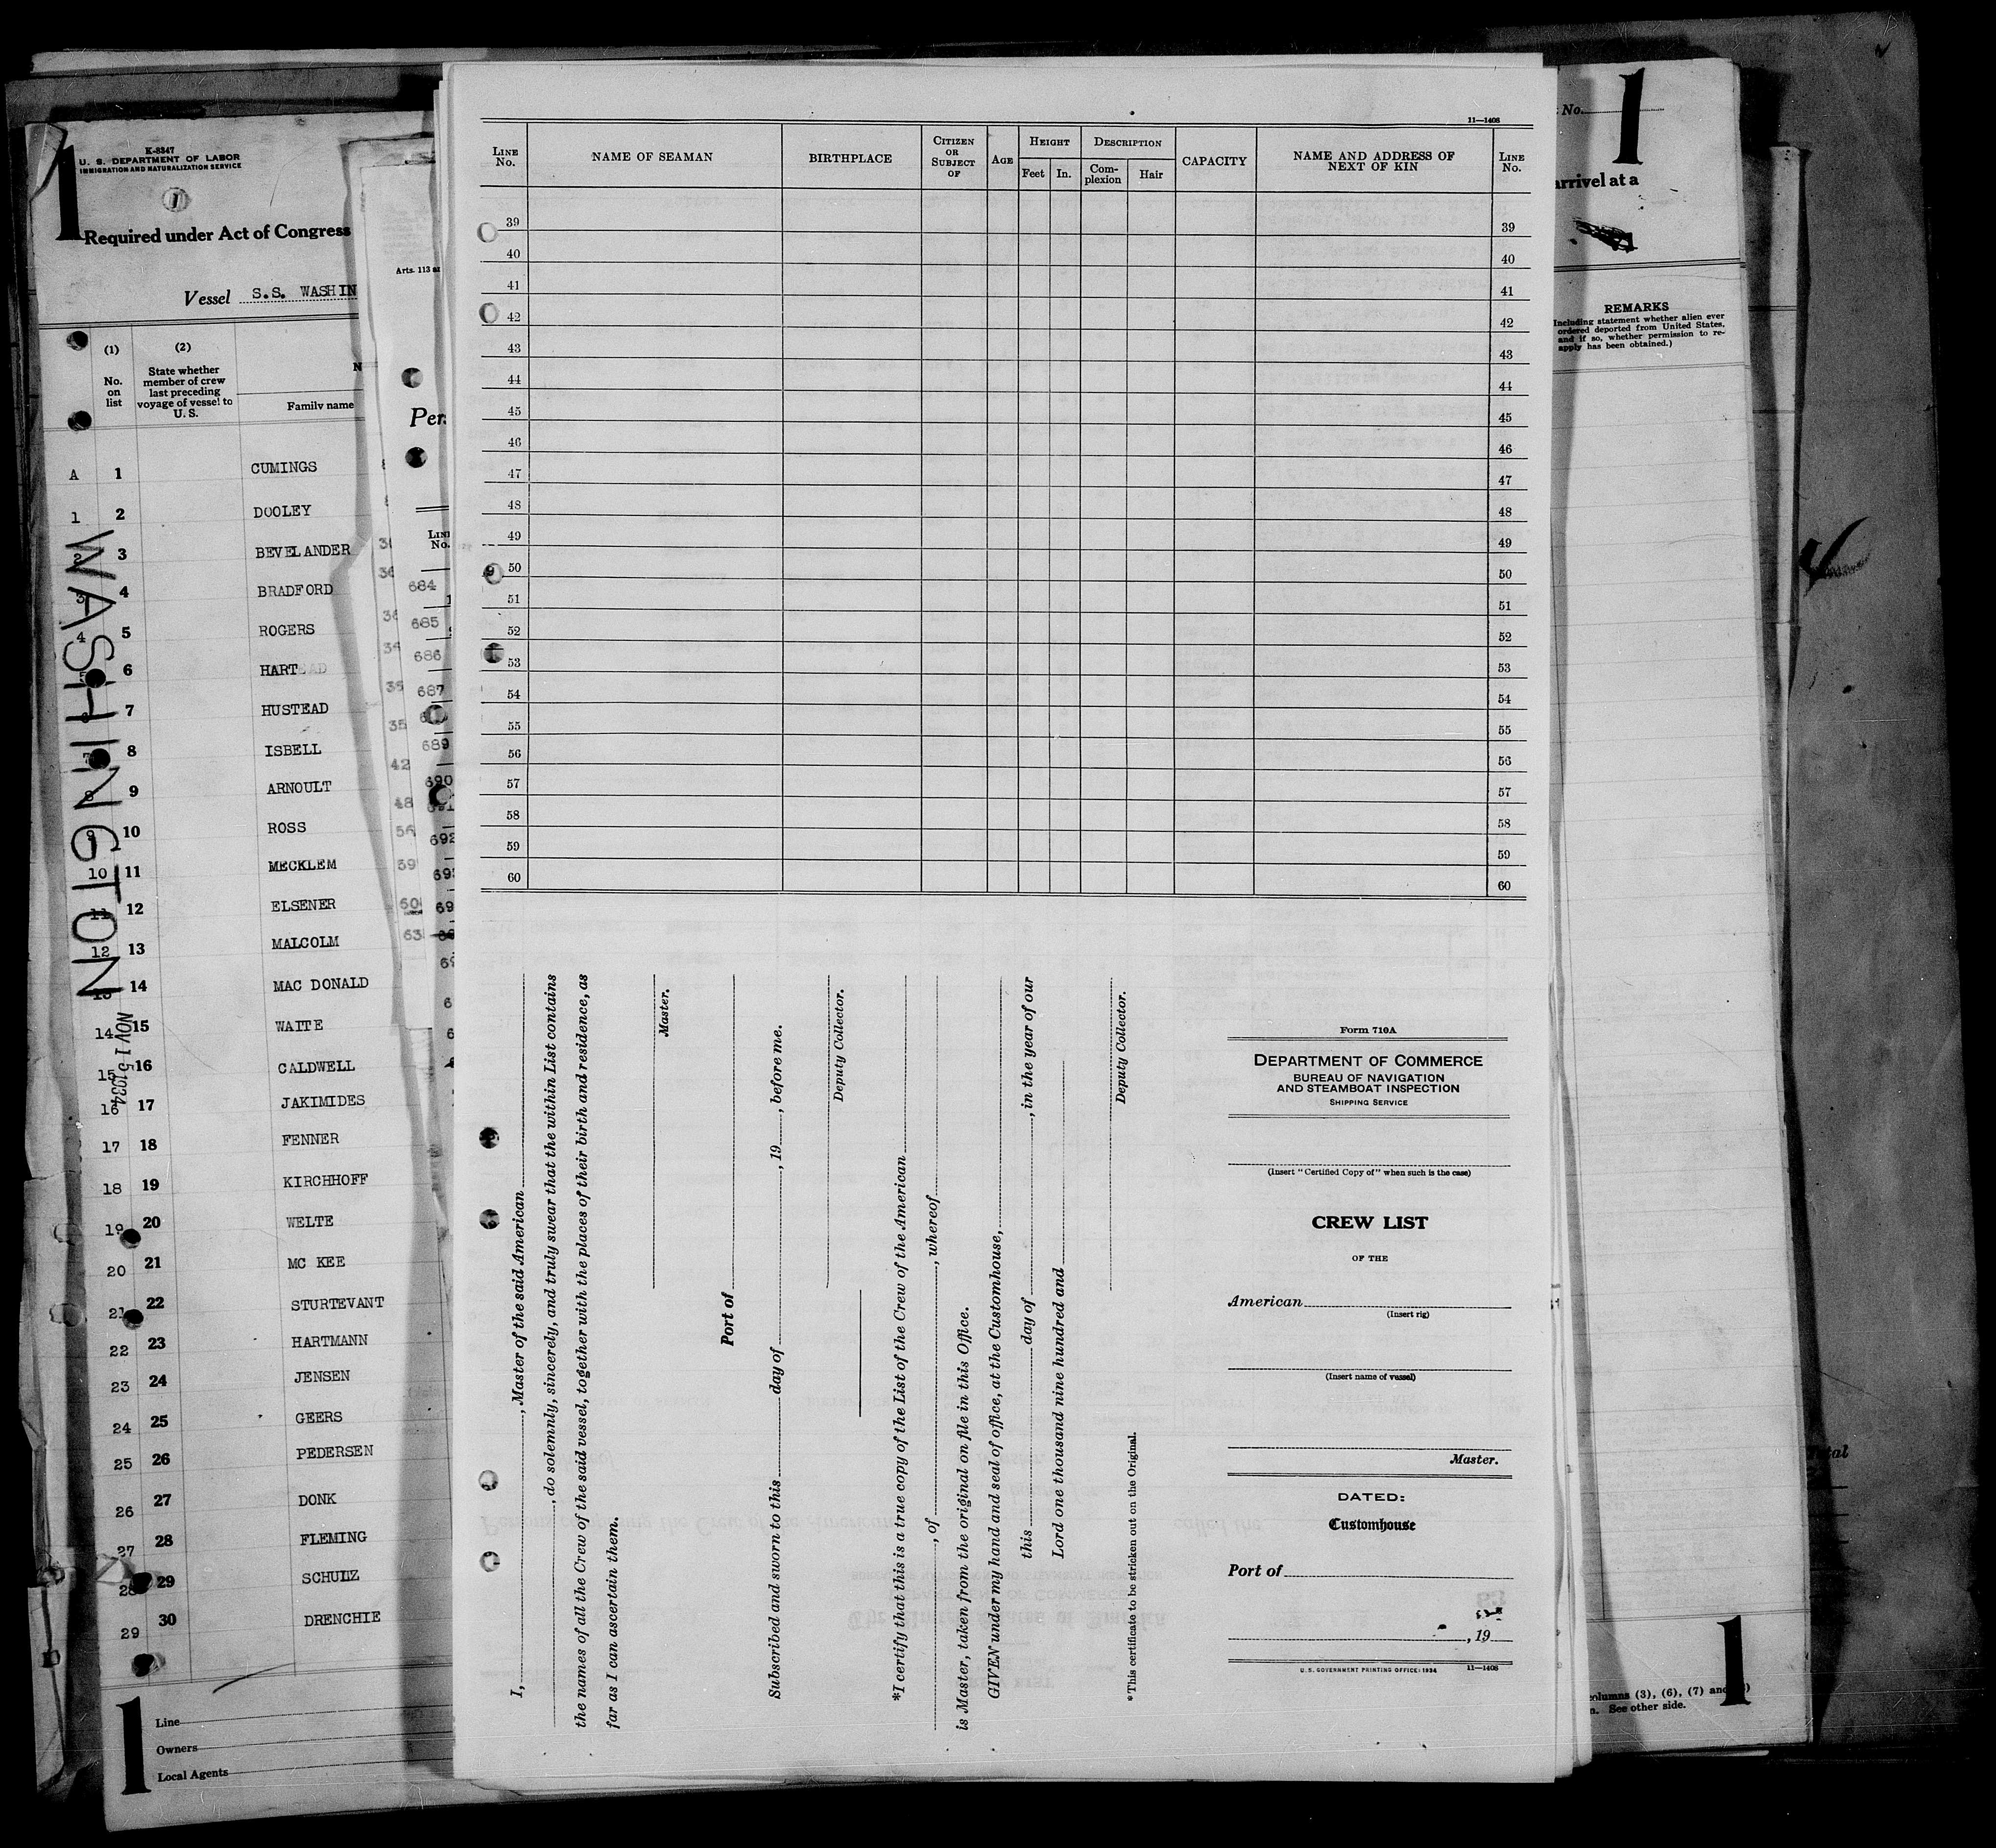 1
K-8347
U. S. DEPARTMENT OF LABOR
IMMIGRATION AND NATURALIZATION SERVICE
1
Required under Act of Congress
Vessel S.S. WASHIN
(1)
No. on list
(2)
State whether member of crew last preceding voyage of vessel to U. S.
N
Family name
A 1 CUMINGS
1 2 DOOLEY
2 3 BEVELANDER
3 4 BRADFORD
4 5 ROGERS
5 6 HART
6 7 HUSTEAD
7 8 ISBELL
8 9 ARNOULT
9 10 ROSS
10 11 MECKLEM
11 12 ELSENER
12 13 MALCOLM
13 14 MAC DONALD
14 15 WAITE
15 16 CALDWELL
16 17 JAKIMIDES
17 18 FENNER
18 19 KIRCHHOFF
19 20 WELTE
20 21 MC KEE
21 22 STURTEVANT
22 23 HARTMANN
23 24 JENSEN
24 25 GEERS
25 26 PEDERSEN
26 27 DONK
27 28 FLEMING
28 29 SCHULZ
29 30 DRENCHIE
WASHINGTON
NOV 15 1934
1
Line
Owners
Local Agents
Arts. 113 a
Pers
LINE No.
684
685
686
687
689
690
691
692
11—1408
LINE No.
NAME OF SEAMAN
BIRTHPLACE
CITIZEN OR SUBJECT OF
AGE
HEIGHT
Feet
In.
DESCRIPTION
Complexion
Hair
CAPACITY
NAME AND ADDRESS OF NEXT OF KIN
LINE No.
39 39
40 40
41 41
42 42
43 43
44 44
45 45
46 46
47 47
48 48
49 49
50 50
51 51
52 52
53 53
54 54
55 55
56 56
57 57
58 58
59 59
60 60
I, , Master of the said American
, do solemnly, sincerely, and truly swear that the within List contains
the names of all the Crew of the said vessel, together with the places of their birth and residence, as
far as I can ascertain them.
Master.
Port of
Subscribed and sworn to this day of , 19 , before me.
Deputy Collector.
*I certify that this is a true copy of the List of the Crew of the American
, of , whereof
is Master, taken from the original on file in this Office.
GIVEN under my hand and seal of office, at the Customhouse,
this day of , in the year of our
Lord one thousand nine hundred and
Deputy Collector.
*This certificate to be stricken out on the Original.
Form 710A
DEPARTMENT OF COMMERCE
BUREAU OF NAVIGATION
AND STEAMBOAT INSPECTION
SHIPPING SERVICE
(Insert "Certified Copy of" when such is the case)
CREW LIST
OF THE
American
(Insert rig)
(Insert name of vessel)
Master.
DATED:
Customhouse
Port of
, 19
U. S. GOVERNMENT PRINTING OFFICE: 1934 11—1408
No.
1
arrivel at a
REMARKS
(Including statement whether alien ever
ordered deported from United States,
and if so, whether permission to re-
apply has been obtained.)
olumns (3), (6), (7) and
n. See other side.
1